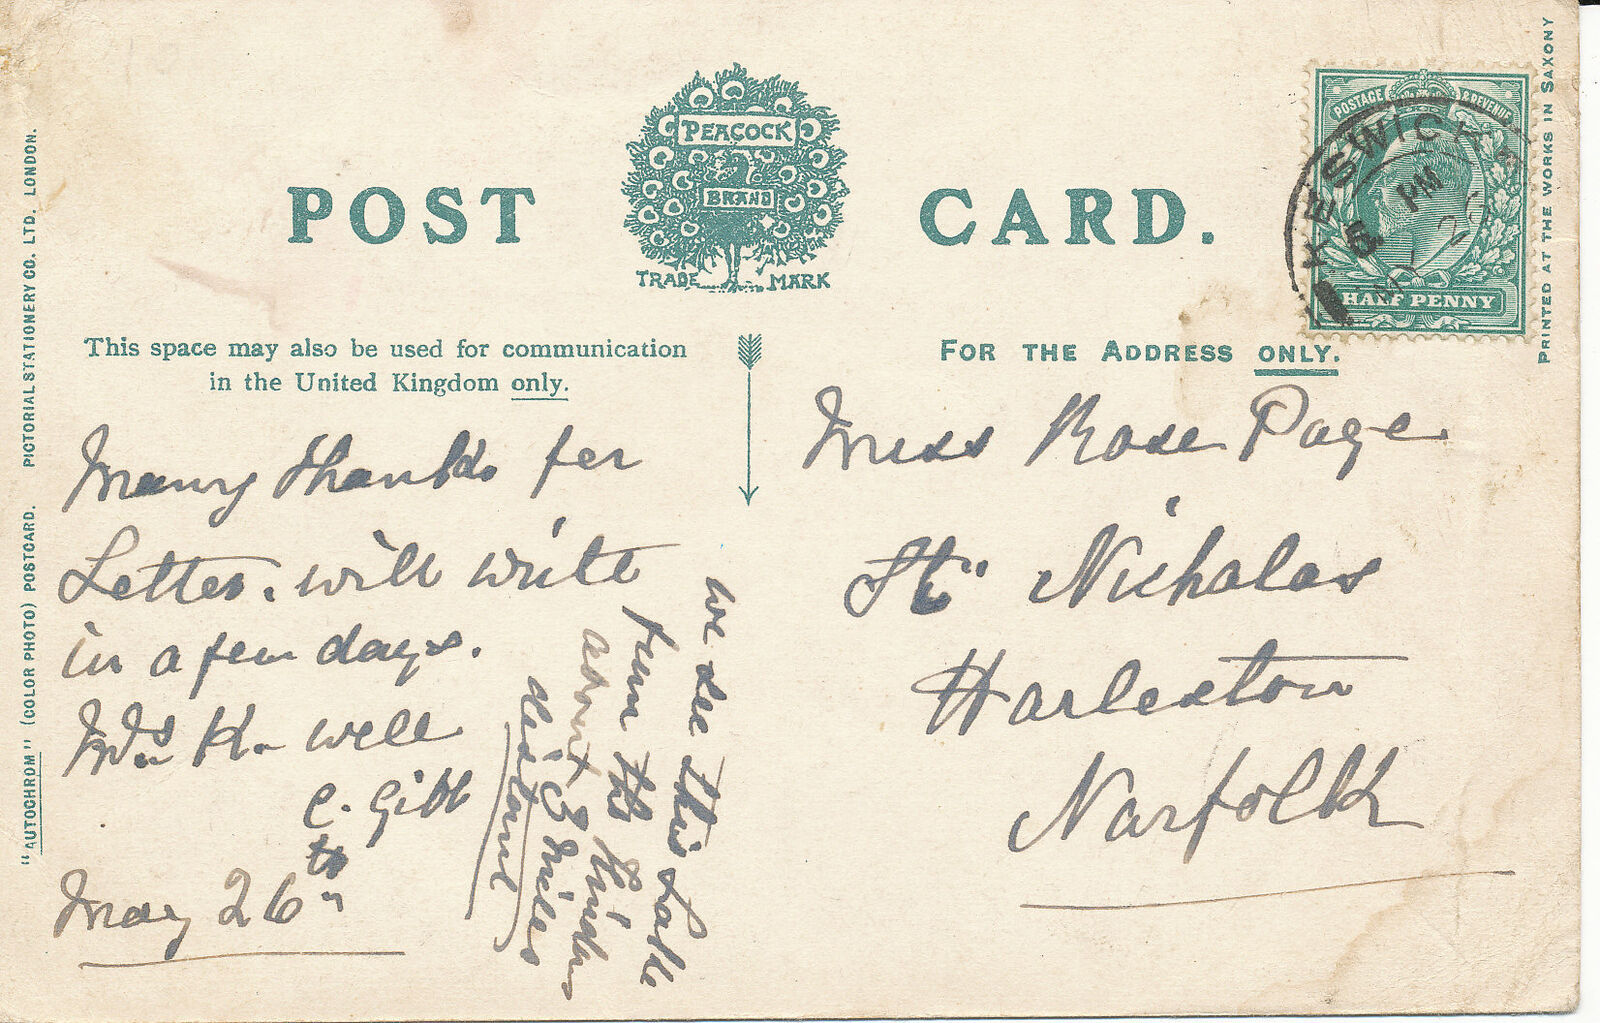 POST CARD.
PEACOCK
BRAND
TRADE MARK
This space may also be used for communication
in the United Kingdom only.
FOR THE ADDRESS ONLY.
POSTAGE & REVENUE
HALF PENNY
KESWICK
5 PM
MY 26
Many thanks for
Letter. will write
in a few days.
Mrs K. well
C. Gibb
May 26th
we see this Lake
from the Window
about 3 miles
distance
Miss Rose Page
St. Nicholas
Harleston
Norfolk
"AUTOCHROM" (COLOR PHOTO) POSTCARD. PICTORIAL STATIONERY CO. LTD. LONDON.
PRINTED AT THE WORKS IN SAXONY